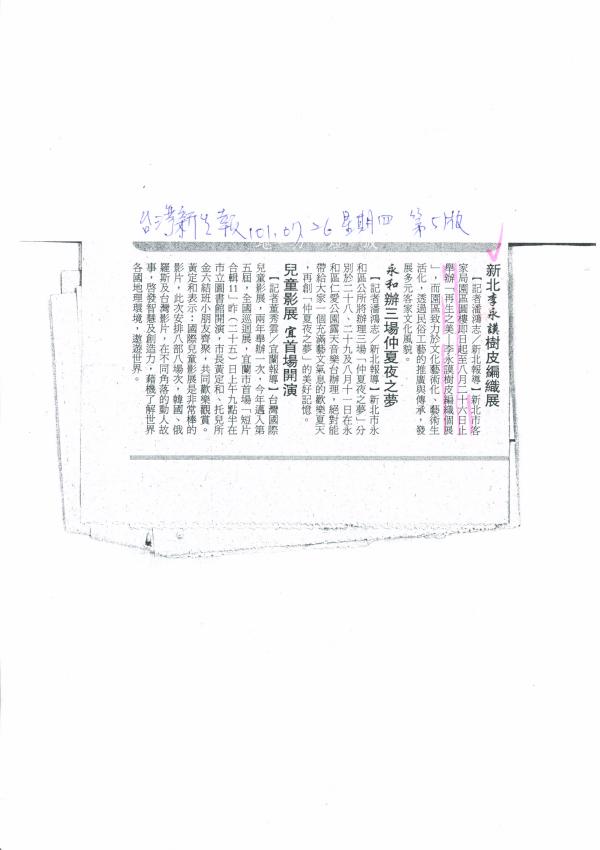 台灣新生報 101.07.26 星期四 第5版
新北李永謨樹皮編織展
【記者潘鴻志／新北報導】新北市客
家局園區圓樓即日起至八月二十六日止
舉辦「再生之美－李永謨樹皮編織個展
」，而園區致力於文化藝術化、藝術生
活化，透過民俗工藝的推廣與傳承，發
展多元客家文化風貌。
永和辦三場仲夏夜之夢
【記者潘鴻志／新北報導】新北市永
和區公所將辦理三場「仲夏夜之夢」分
別於二十八、二十九及八月十一日在永
和區仁愛公園露天音樂台辦理，絕對能
帶給大家一個充滿藝文氣息的歡樂夏天
，再創「仲夏夜之夢」的美好記憶。
兒童影展 宜首場開演
【記者董秀雲／宜蘭報導】台灣國際
兒童影展，兩年舉辦一次，今年邁入第
五屆，全國巡迴展，宜蘭市首場「短片
合輯11」昨（二十五）日上午九點半在
市立圖書館開演，市長黃定和、托兒所
金六結班小朋友齊聚，共同歡樂觀賞。
黃定和表示：國際兒童影展是非常棒的
影片，此次安排八部八場次，韓國、俄
羅斯及台灣影片，在不同角落的動人故
事，啓發智慧及創造力，藉機了解世界
各國地理環境，遨遊世界。